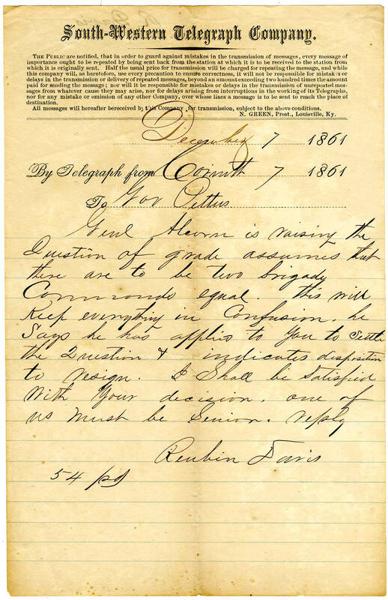 South-Western Telegraph Company.
THE PUBLIC are notified, that in order to guard against mistakes in the transmission of messages, every message of
importance ought to be repeated by being sent back from the station at which it is to be received to the station from
which it is originally sent. Half the usual price for transmission will be charged for repeating the message, and while
this company will, as heretofore, use every precaution to ensure correctness, it will not be responsible for mistakes or
delays in the transmission or delivery of repeated messages, beyond an amount exceeding two hundred times the amount
paid for sending the message; nor will it be responsible for mistakes or delays in the transmission of unrepeated messages
from whatever cause they may arise, nor for delays arising from interruptions in the working of its Telegraphs,
nor for any mistake or omission of any other Company, over whose lines a message is to be sent to reach the place of
destination.
All messages will hereafter be received by this Company for transmission, subject to the above conditions.
N. GREEN, Prest., Louisville, Ky.
December 7 1861
By Telegraph from Corinth 7 1861
To Gov Pettus
Genl Alcorn is raising the
Question of grade assumes that
there are to be two brigady
Commands equal. this will
Keep everything in Confusion. he
Says he has applied to You to Settle
the Question & indicates disposition
to resign. I Shall be Satisfied
With Your decision. one of
us must be Senior. reply
Reubin Davis
54 pd